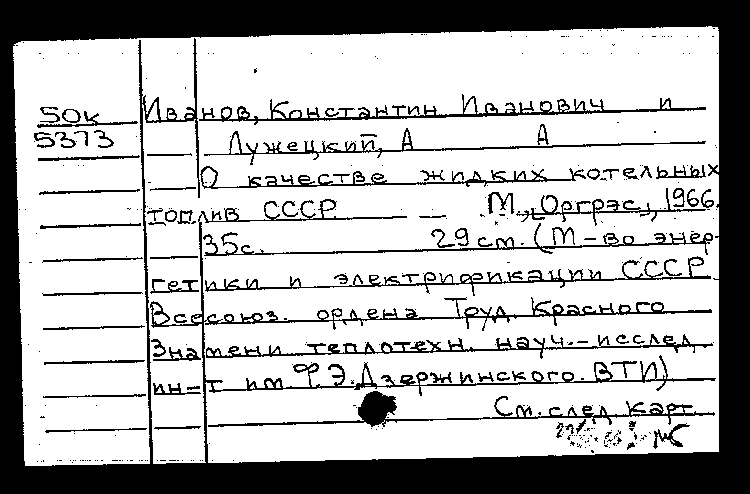 50к Иванов, Константин Иванович и
5373 Лужецкий, А А
О качестве жидких котельных
топлив СССР — М., „Оргрэс„, 1966.
35с. 29 см. (М-во энер-
гетики и электрификации СССР
Всесоюз. ордена Труд. Красного
Знамени теплотехн. науч.-исслед.
ин-т им Ф.Э.Дзержинского. ВТИ)
См. след. карт.